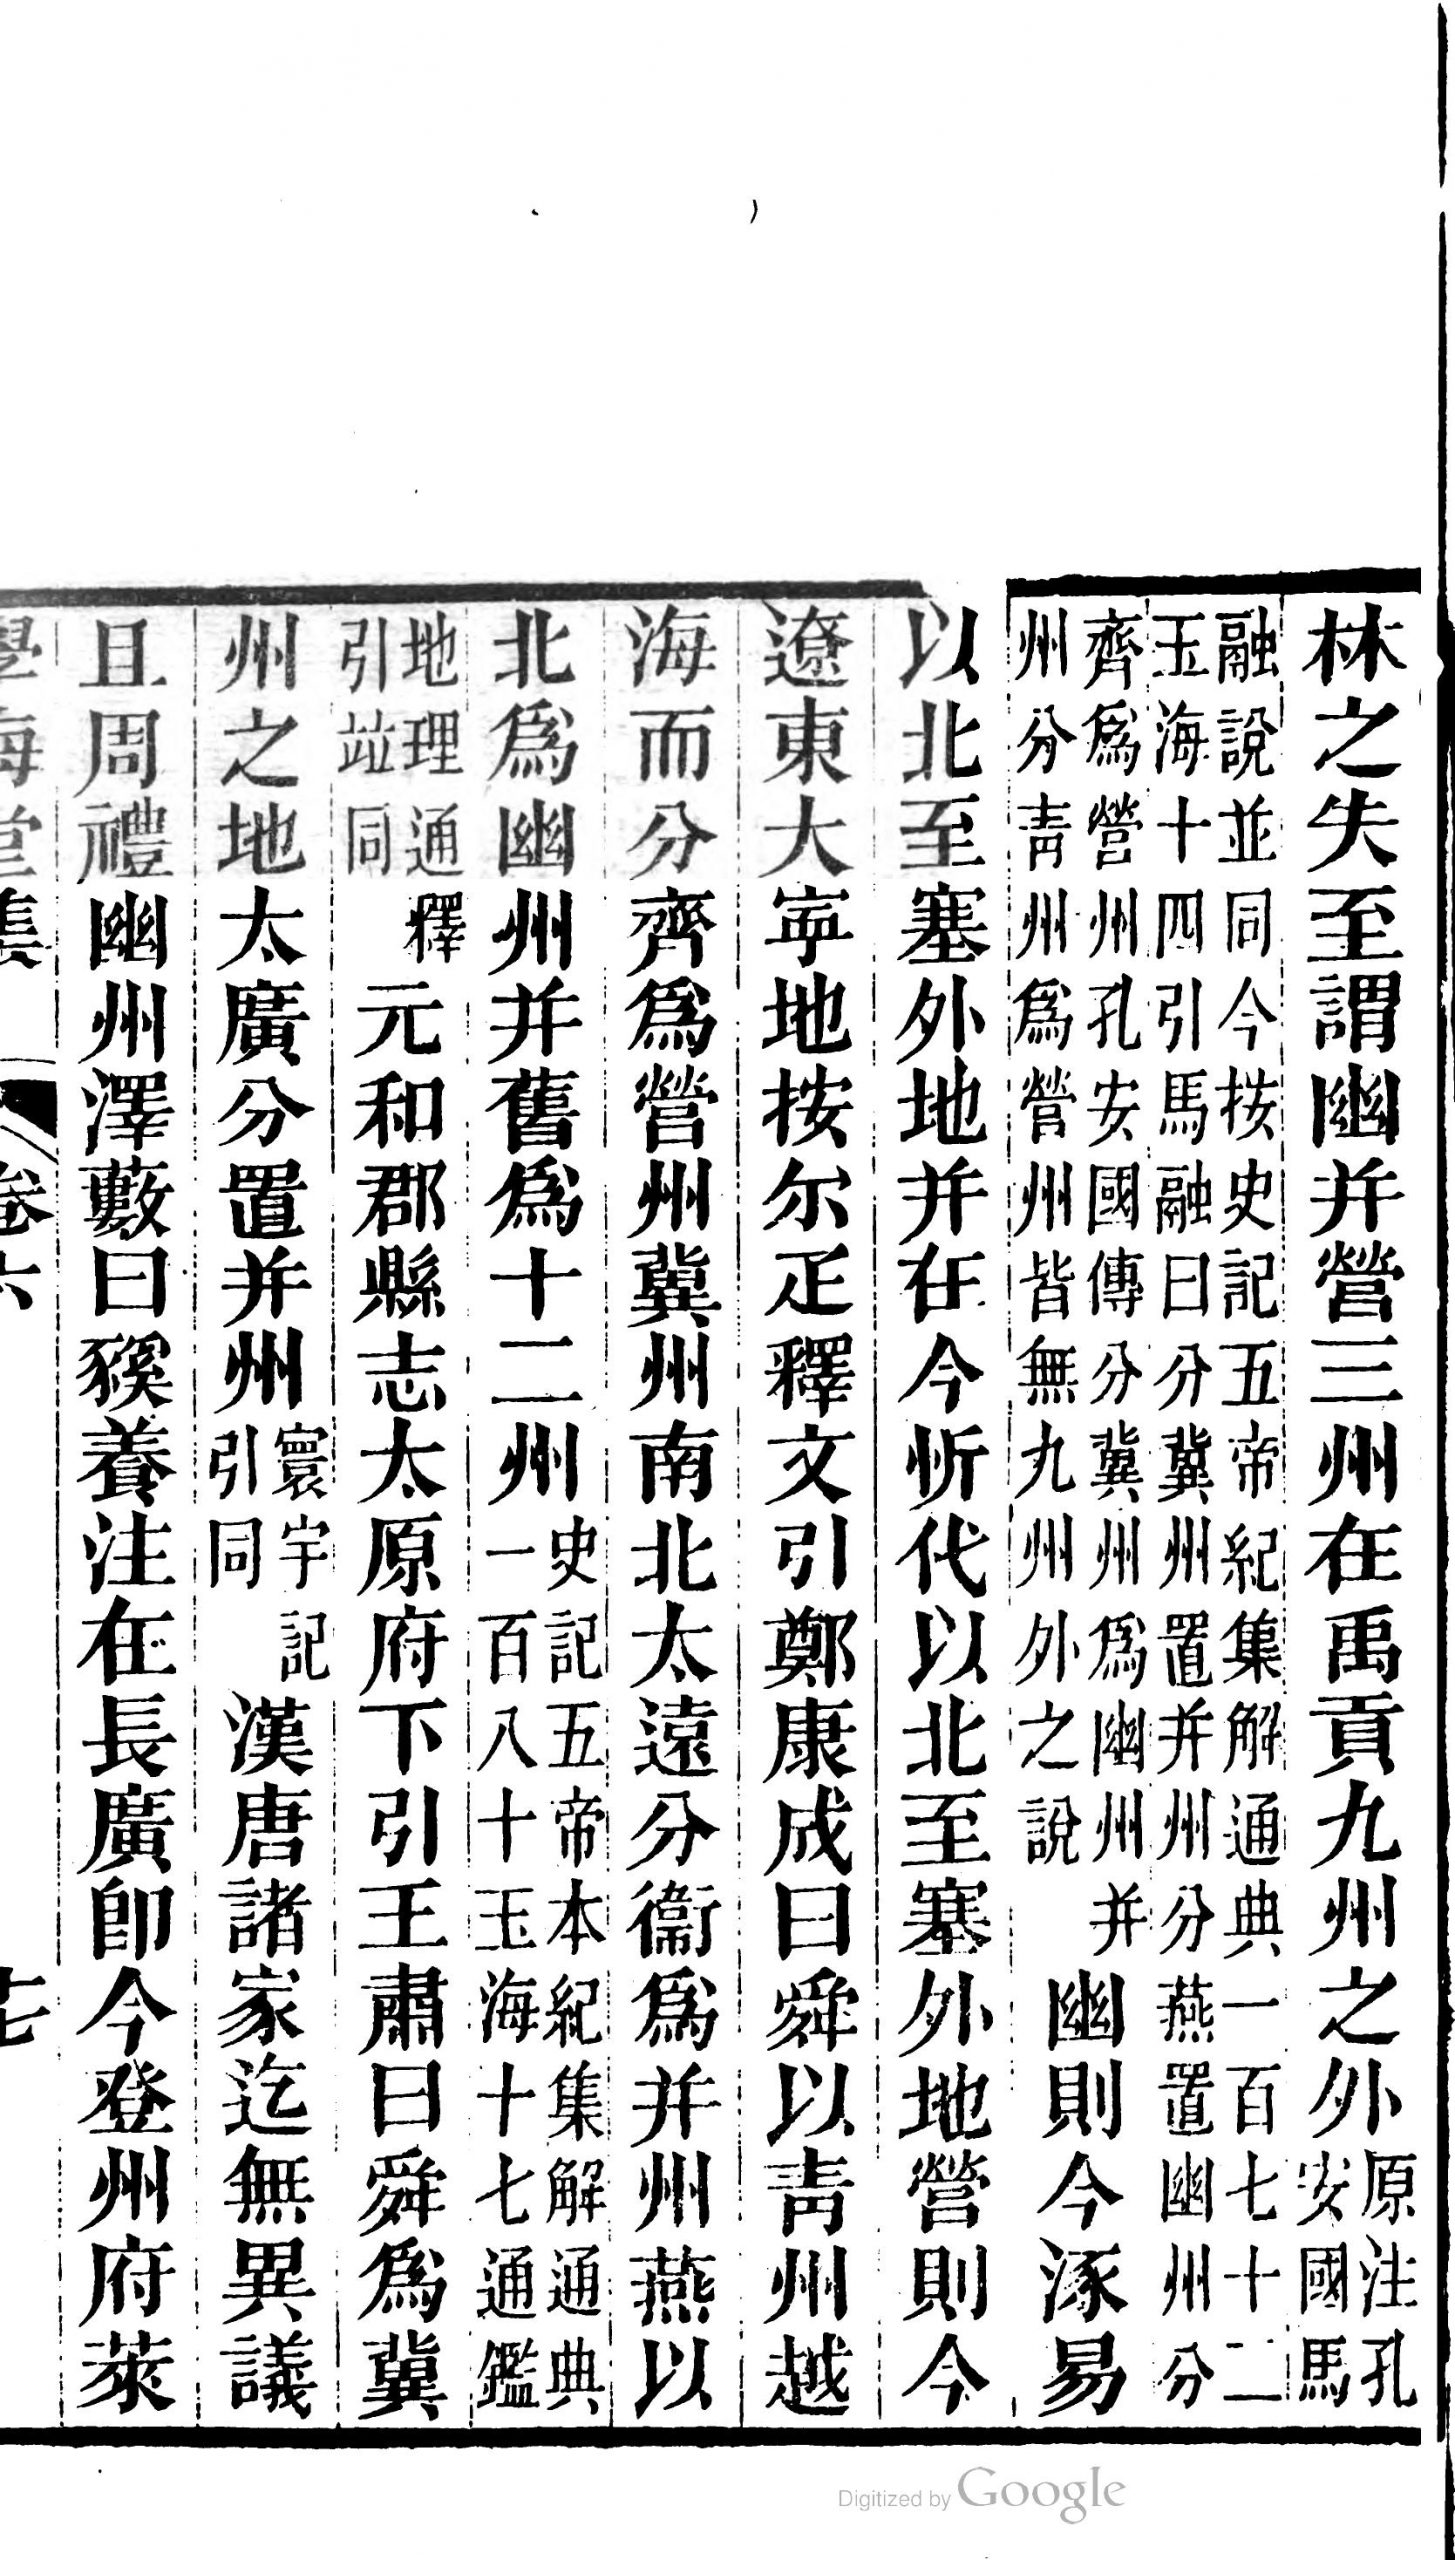 林之失至謂幽并營三州在禹貢九州之外原注孔安國馬
融說並同今按史記五帝紀集解通典一百七十二玉海十四引馬融曰分冀州置并州分燕置幽州分
齊爲營州孔安國傳分冀州爲幽州并州分青州爲營州皆無九州外之說幽則今涿易
以北至塞外地并在今忻代以北至塞外地營則今
遼東大寕地按尔疋釋文引鄭康成曰舜以青州越
海而分齊爲營州冀州南北太遠分衞爲并州燕以
北爲幽州并舊爲十二州史記五帝本紀集解通典一百八十玉海十七通鑑
地理通釋引竝同元和郡縣志太原府下引王肅曰舜爲冀
州之地太廣分置并州寰宇記引同漢唐諸家迄無異議
且周禮幽州澤藪曰豯養注在長廣卽今登州府萊
學海堂集 卷六 七
Digitized by Google